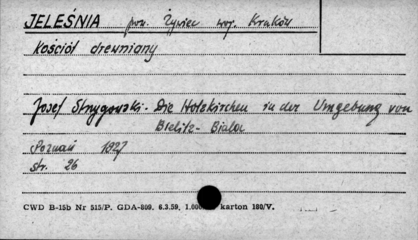 JELEŚNIA pow. Żywiec woj. Kraków
kościół drewniany
Josef Strzygowski - Die Holzkirchen in der Umgebung von
Bielitz - Biala
Poznań 1927
str. 26
CWD B-15b Nr 515/P. GDA-809. 6.3.59. 1.000 karton 180/V.